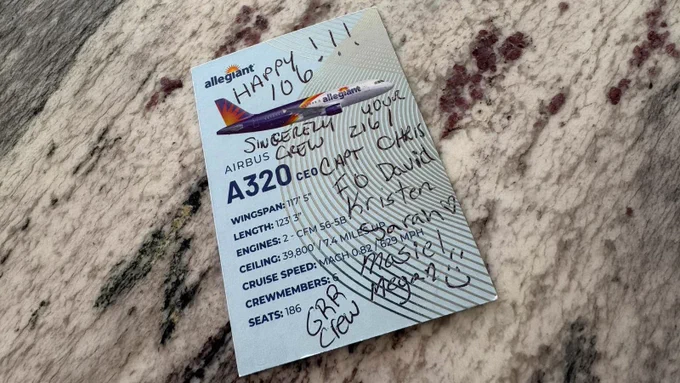 allegiant
HAPPY !!!
106
allegiant
SINCERELY YOUR
CREW 2161
AIRBUS
A320 CEO
CAPT CHRIS
FO David
Kristen
Sarah ♡
Masiel
Megan
WINGSPAN: 117' 5"
LENGTH: 123' 3"
ENGINES: 2 - CFM 56-5B
CEILING: 39,800' / 7.4 MILES UP
CRUISE SPEED: MACH 0.82 / 629 MPH
CREWMEMBERS: 6
SEATS: 186
GRR
Crew